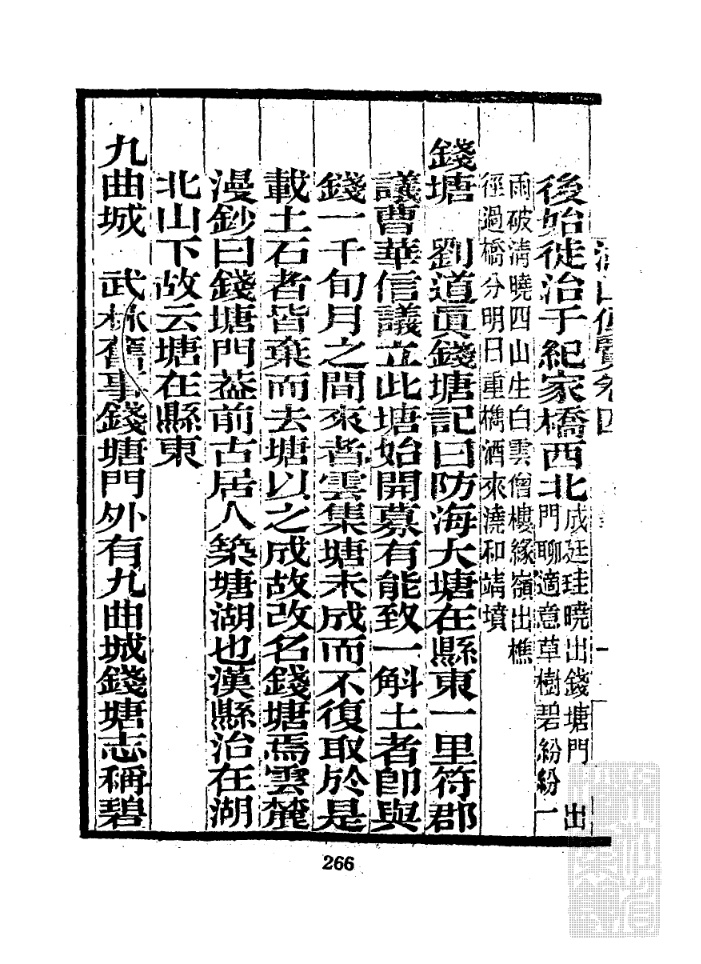 湖山便覽卷四
後始徙治于紀家橋西北
成廷珪曉出錢塘門 出
門聊適意草樹碧紛紛一
雨破淸曉四山生白雲僧樓緣嶺出樵
徑過橋分明日重攜酒來澆和靖墳
錢塘 劉道眞錢塘記曰防海大塘在縣東一里符郡
議曹華信議立此塘始開募有能致一斛土者卽與
錢一千旬月之間來者雲集塘未成而不復取於是
載土石者皆棄而去塘以之成故改名錢塘焉雲麓
漫鈔曰錢塘門葢前古居人築塘湖也漢縣治在湖
北山下故云塘在縣東
九曲城 武林舊事錢塘門外有九曲城錢塘志稱碧
266